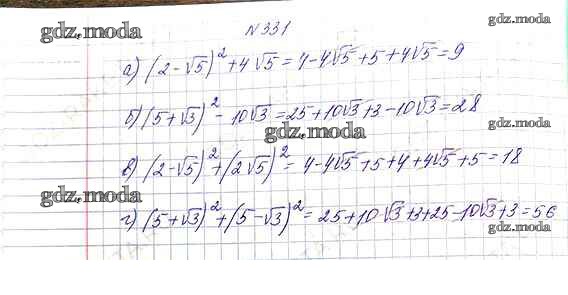 gdz.moda
N 331
gdz.moda
а) (2-√5)² + 4√5 = 4-4√5+5+4√5 = 9
gdz.moda
б) (5+√3)² - 10√3 = 25+10√3+3-10√3 = 28
gdz.moda
gdz.moda
в) (2-√5)² + (2√5)² = 4-4√5+5+4+4√5+5 = 18
gdz.moda
gdz.moda
г) (5+√3)² + (5-√3)² = 25+10√3+3+25-10√3+3 = 56
gdz.moda